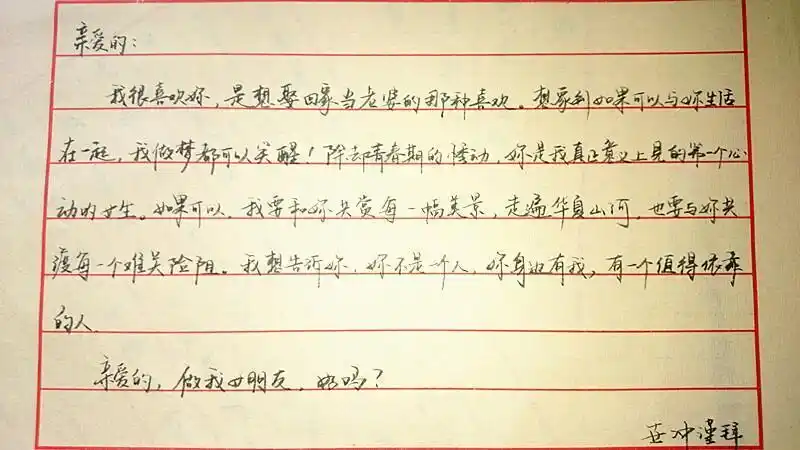 亲爱的：
我很喜欢妳，是想娶回家当老婆的那种喜欢。想象到如果可以与妳生活
在一起，我做梦都可以笑醒！除却青春期的悸动，妳是我真正意义上见的第一个心
动的女生。如果可以，我要和妳共赏每一幅美景，走遍华夏山河，也要与妳共
渡每一个难关险阻。我想告诉妳，妳不是一个人，妳身边有我，有一个值得依靠
的人。
亲爱的，做我女朋友，好吗？
世冲谨拜